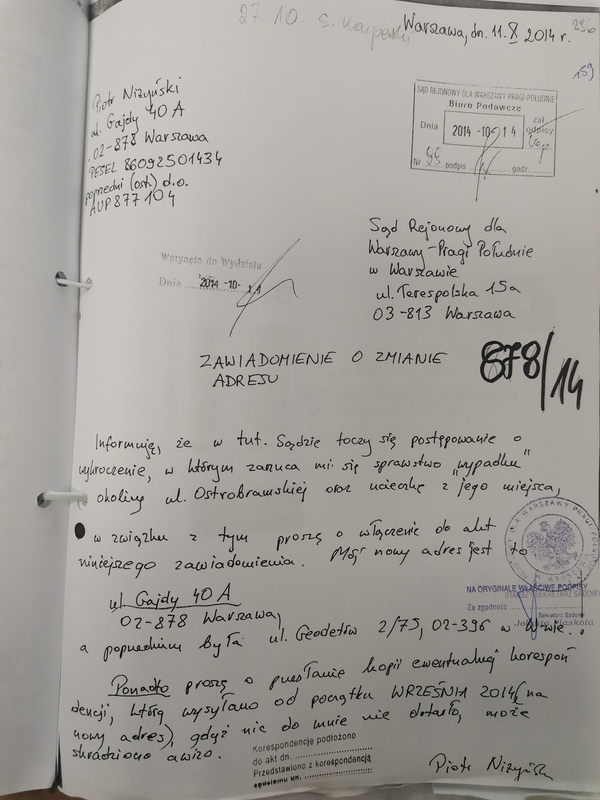 27 10. S.
Warszawa, dn. 11.X 2014 r.
159
Piotr Niżyński
ul. Gajdy 40 A
02-878 Warszawa
PESEL 86092501434
poprzedni (ost.) d.o.
AUP 877104
SĄD REJONOWY DLA WARSZAWY PRAGI-POŁUDNIE
Biuro Podawcze
Dnia 2014 -10- 14 zał.
odpisy
Nr podpis godz.
Sąd Rejonowy dla
Warszawy-Pragi Południe
w Warszawie
ul. Terespolska 15a
03-813 Warszawa
Wpłynęło do Wydziału
Dnia 2014 -10- 14
ZAWIADOMIENIE O ZMIANIE
ADRESU
678/14
Informuję, że w tut. Sądzie toczy się postępowanie o
wykroczenie, w którym zarzuca mi się sprawstwo „wypadku"
w okolicy ul. Ostrobramskiej oraz ucieczkę z jego miejsca,
w związku z tym proszę o włączenie do akt
niniejszego zawiadomienia. Mój nowy adres jest to
NA ORYGINALE WŁAŚCIWE PODPISY
STARSZY SEKRETARZ SĄDOWY
Za zgodność
Sekretarz Sądowy
Jolanta Płaskota
ul. Gajdy 40 A
02-878 Warszawa,
a poprzednim była ul. Geodetów 2/75, 02-396 w W-wie.
Ponadto proszę o przesłanie kopii ewentualnej korespon
dencji, którą wysyłano od początku WRZEŚNIA 2014 (na
nowy adres), gdyż nic do mnie nie dotarło, może
skradziono awizo.
Korespondencję podłożono
do akt dn.
Przedstawiono z korespondencją
sędziemu dn.
Piotr Niżyński